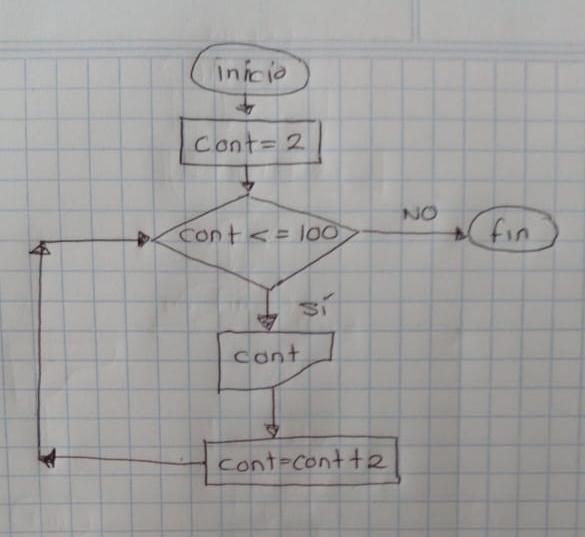 inicio
cont = 2
cont <= 100
NO
fin
sí
cont
cont=cont+2